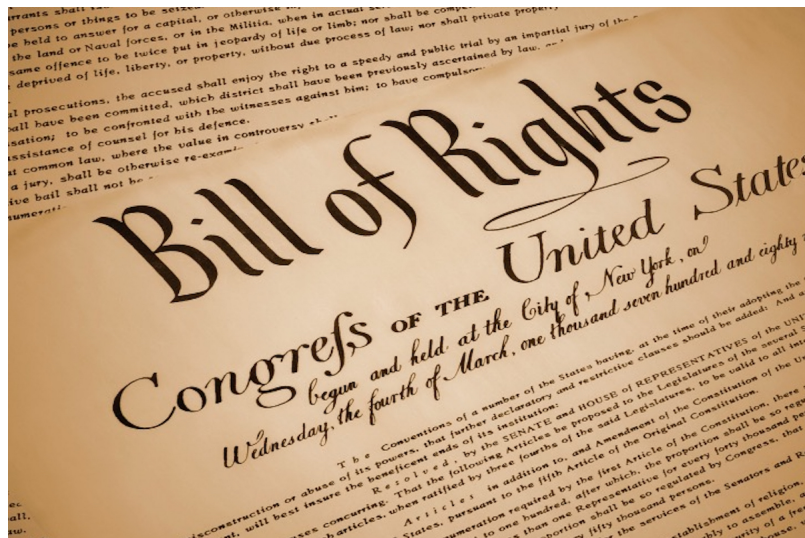 rrants shall
persons or things to be seize
be held to answer for a capital, or otherwise
the land or Naval forces, or in the Militia, when in actual
same offence to be twice put in jeopardy of life or limb; nor shall be compe
deprived of life, liberty, or property, without due process of law; nor shall private property
l prosecutions, the accused shall enjoy the right to a speedy and public trial by an impartial jury of the
all have been committed, which district shall have been previously ascertained by law,
sation; to be confronted with the witnesses against him; to have compulsor
ssistance of counsel for his defence.
t common law, where the value in controversy
a jury, shall be otherwise re-exami
ive bail shall not be
numerati
Bill of Rights
Congreſs OF THE United States
begun and held at the City of New York, on
Wednesday, the fourth of March, one thousand seven hundred and eighty
The Conventions of a number of the States having, at the time of their adopting the
isconstruction or abuse of its powers, that further declaratory and restrictive clauses should be added: And
t, will best insure the beneficent ends of its institution:
Resolved, by the SENATE and HOUSE of REPRESENTATIVES of the UNI
ses concurring. That the following Articles be proposed to the Legislatures of the several S
articles, when ratified by three fourths of the said Legislatures, to be valid to all int
Articles in addition to, and Amendment of the Constitution of the Un
States, pursuant to the fifth Article of the Original Constitution.
numeration required by the first Article of the Constitution, there
to one hundred, after which, the proportion shall be so reg
than one Representative for every forty thousand p
proportion shall be so regulated by Congress, that
fifty thousand persons.
the services of the Senators and R
establishment of religion,
to assemble, a
urity of a fre
house,
all,
aw.